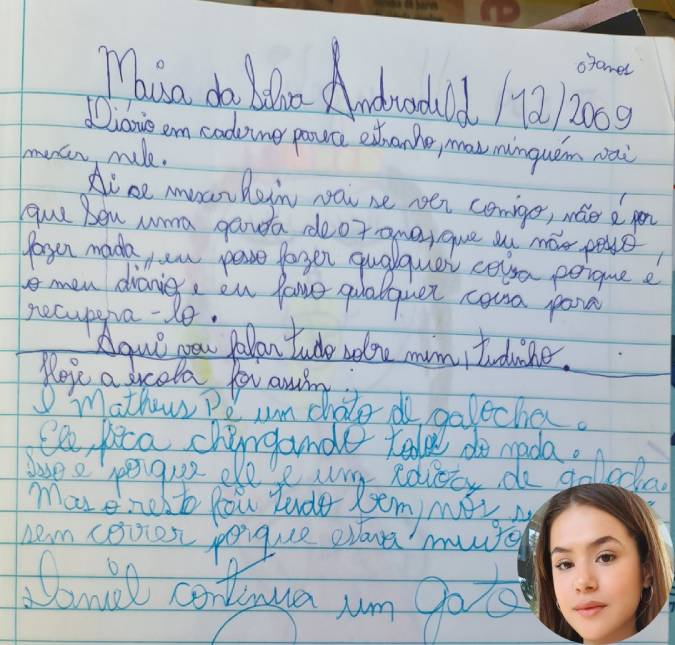 07anos
Maisa da Silva Andrade 01/12/2009
Diário em caderno parece estranho, mas ninguém vai
mexer nele.
Ai se mexer hein vai se ver comigo, não é por
que sou uma garota de 07 anos, que eu não posso
fazer nada, eu posso fazer qualquer coisa porque é
o meu diário e eu faço qualquer coisa para
recupera-lo.
Aqui vou falar tudo sobre mim, tudinho.
Hoje a escola foi assim:
O Matheus P é um chato de galocha.
Ele fica chingando todos do nada.
Isso é porque ele é um idiota de galocha.
Mas o resto foi tudo bem, nós
sem correr porque estava muito
O Daniel continua um gato